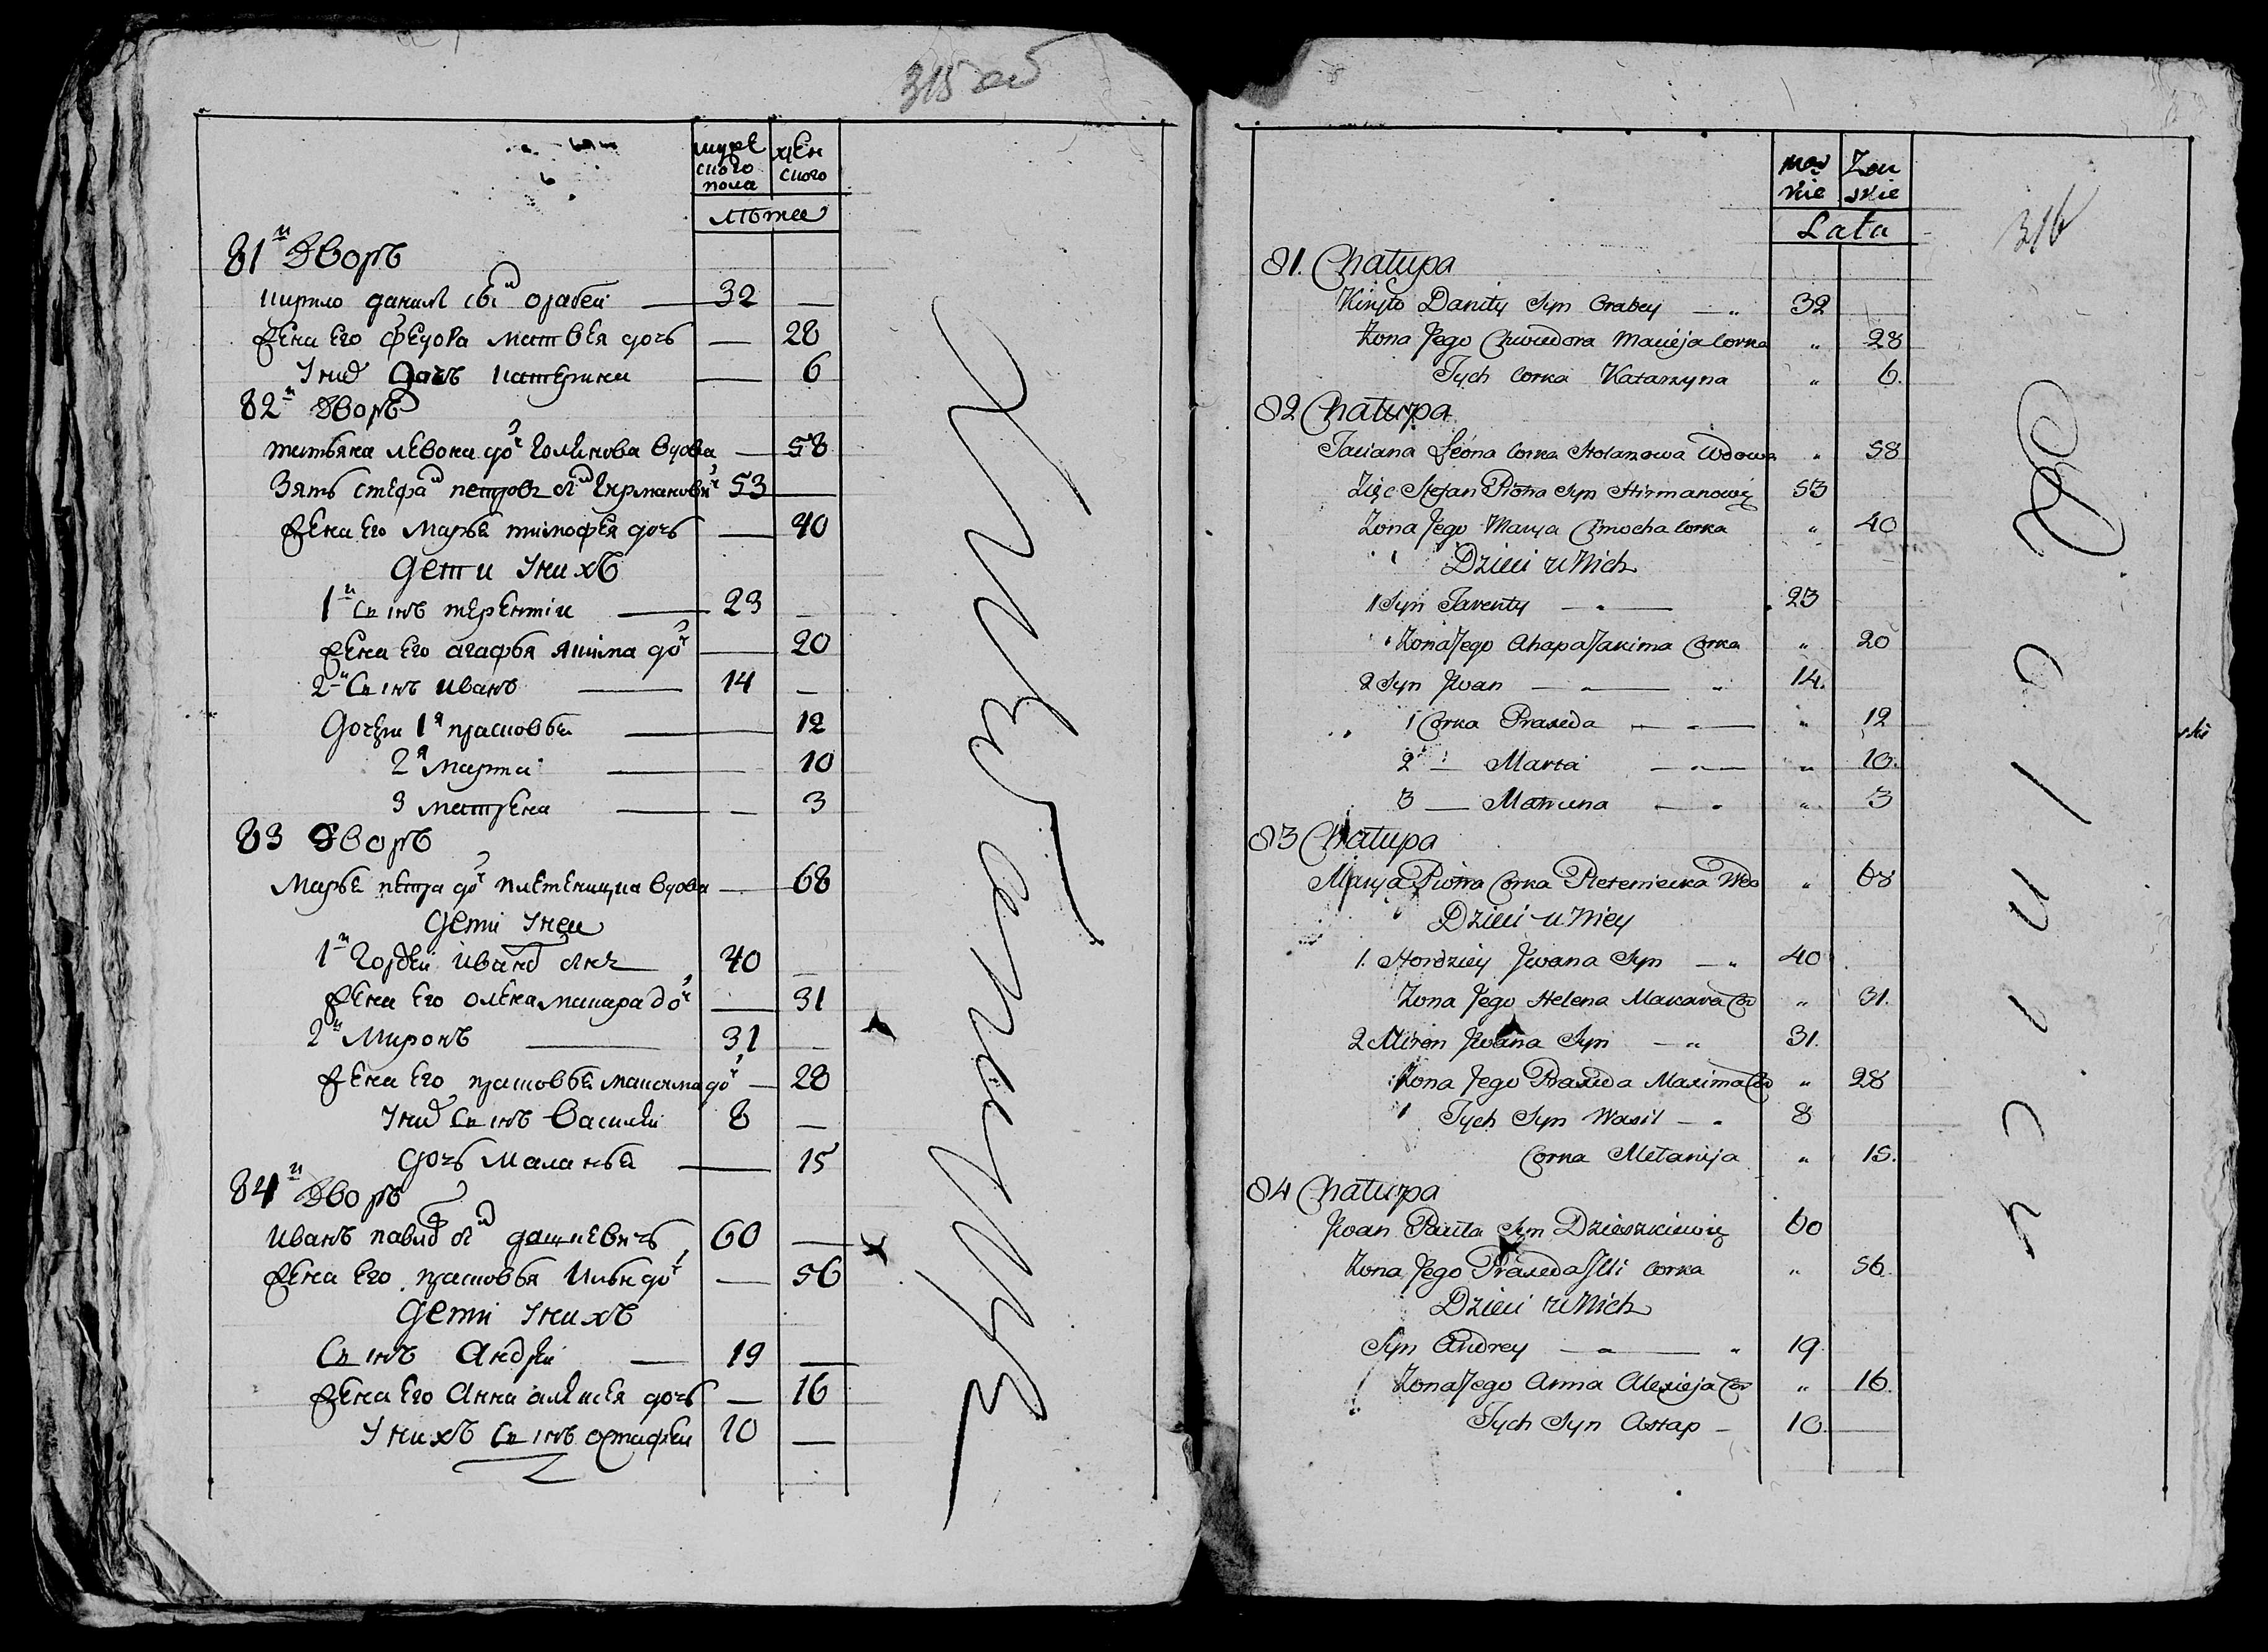 315 об
мужеского пола | женского
лѣта
81й Дворъ
Кирило данил сын грабей — 32 —
жена Его федора матвѣя дочь — 28
У них Дочь Катерина — 6
82й Дворъ
татьяна левона доч голякова вдова — 58
Зять стефан петров сын гирманович 53 —
жена Его Марья тимофея дочь — 40
Дети У нихъ
1й Сынъ терентiи — 23 —
жена Его агафья якима доч — 20
2й Сынъ иванъ — 14 —
Дочери 1я прасковья — 12
2я Марта — 10
3 матрена — 3
83 Дворъ
Марья петра доч плетеницка вдова — 68
Дети У неи
1й гордѣй Иванов сын 40 —
жена Его олена макара доч — 31
2й Миронъ — 31 —
жена Его прасковья максима доч — 28
У них Сынъ Василѣй 8 —
дочь Маланья — 15
84й Дворъ
иванъ павлов сын дашкевичъ 60 —
жена Его прасковья Ильи доч — 56
Дети У нихъ
Сынъ Андрѣй — 19 —
жена Его Анна алѣксѣя дочь — 16
У нихъ Сынъ остафѣи 10 —
316
Męskie | Żeńskie
Lata
81. Chałupa
Kiryło Daniły Syn Grabey — „ 32
Żona Jego Chwiedora Macieja Corka „ 28
Tych Corka Katarzyna „ 6.
82 Chałupa
Taciana Léona Corka Holakowa Wdowa „ 58
Zięć Stefan Piotra Syn Hirmanowicz 53
Żona Jego Marya Cimocha Corka „ 40
Dzieci u Nich
1 Syn Tarenty — „ — 23
Żona Jego Ahapa Jakima Corka „ 20
2 Syn Jwan — „ — „ 14.
1 Corka Praxeda — „ — „ 12
2 — Marta — „ — „ 10.
3 — Matruna — „ „ 3
83 Chałupa
Marya Piotra Corka Pleteniecka Wdo „ 68
Dzieci u Niey
1. Hordziey Jwana Syn — „ 40
Żona Jego Helena Makara Cor „ 31.
2 Miron Jwana Syn — „ 31.
Żona Jego Praxeda Maxima Cor „ 28
Tych Syn Wasil — „ 8
Corka Melanija „ 15.
84 Chałupa
Jwan Pawła Syn Dzieszkiewicz 60
Żona Jego Praxeda Jlli Corka „ 56.
Dzieci u Nich
Syn Andrey — „ — „ 19.
Żona Jego Anna Alexieja Cor „ 16.
Tych Syn Astap — 10.
ski